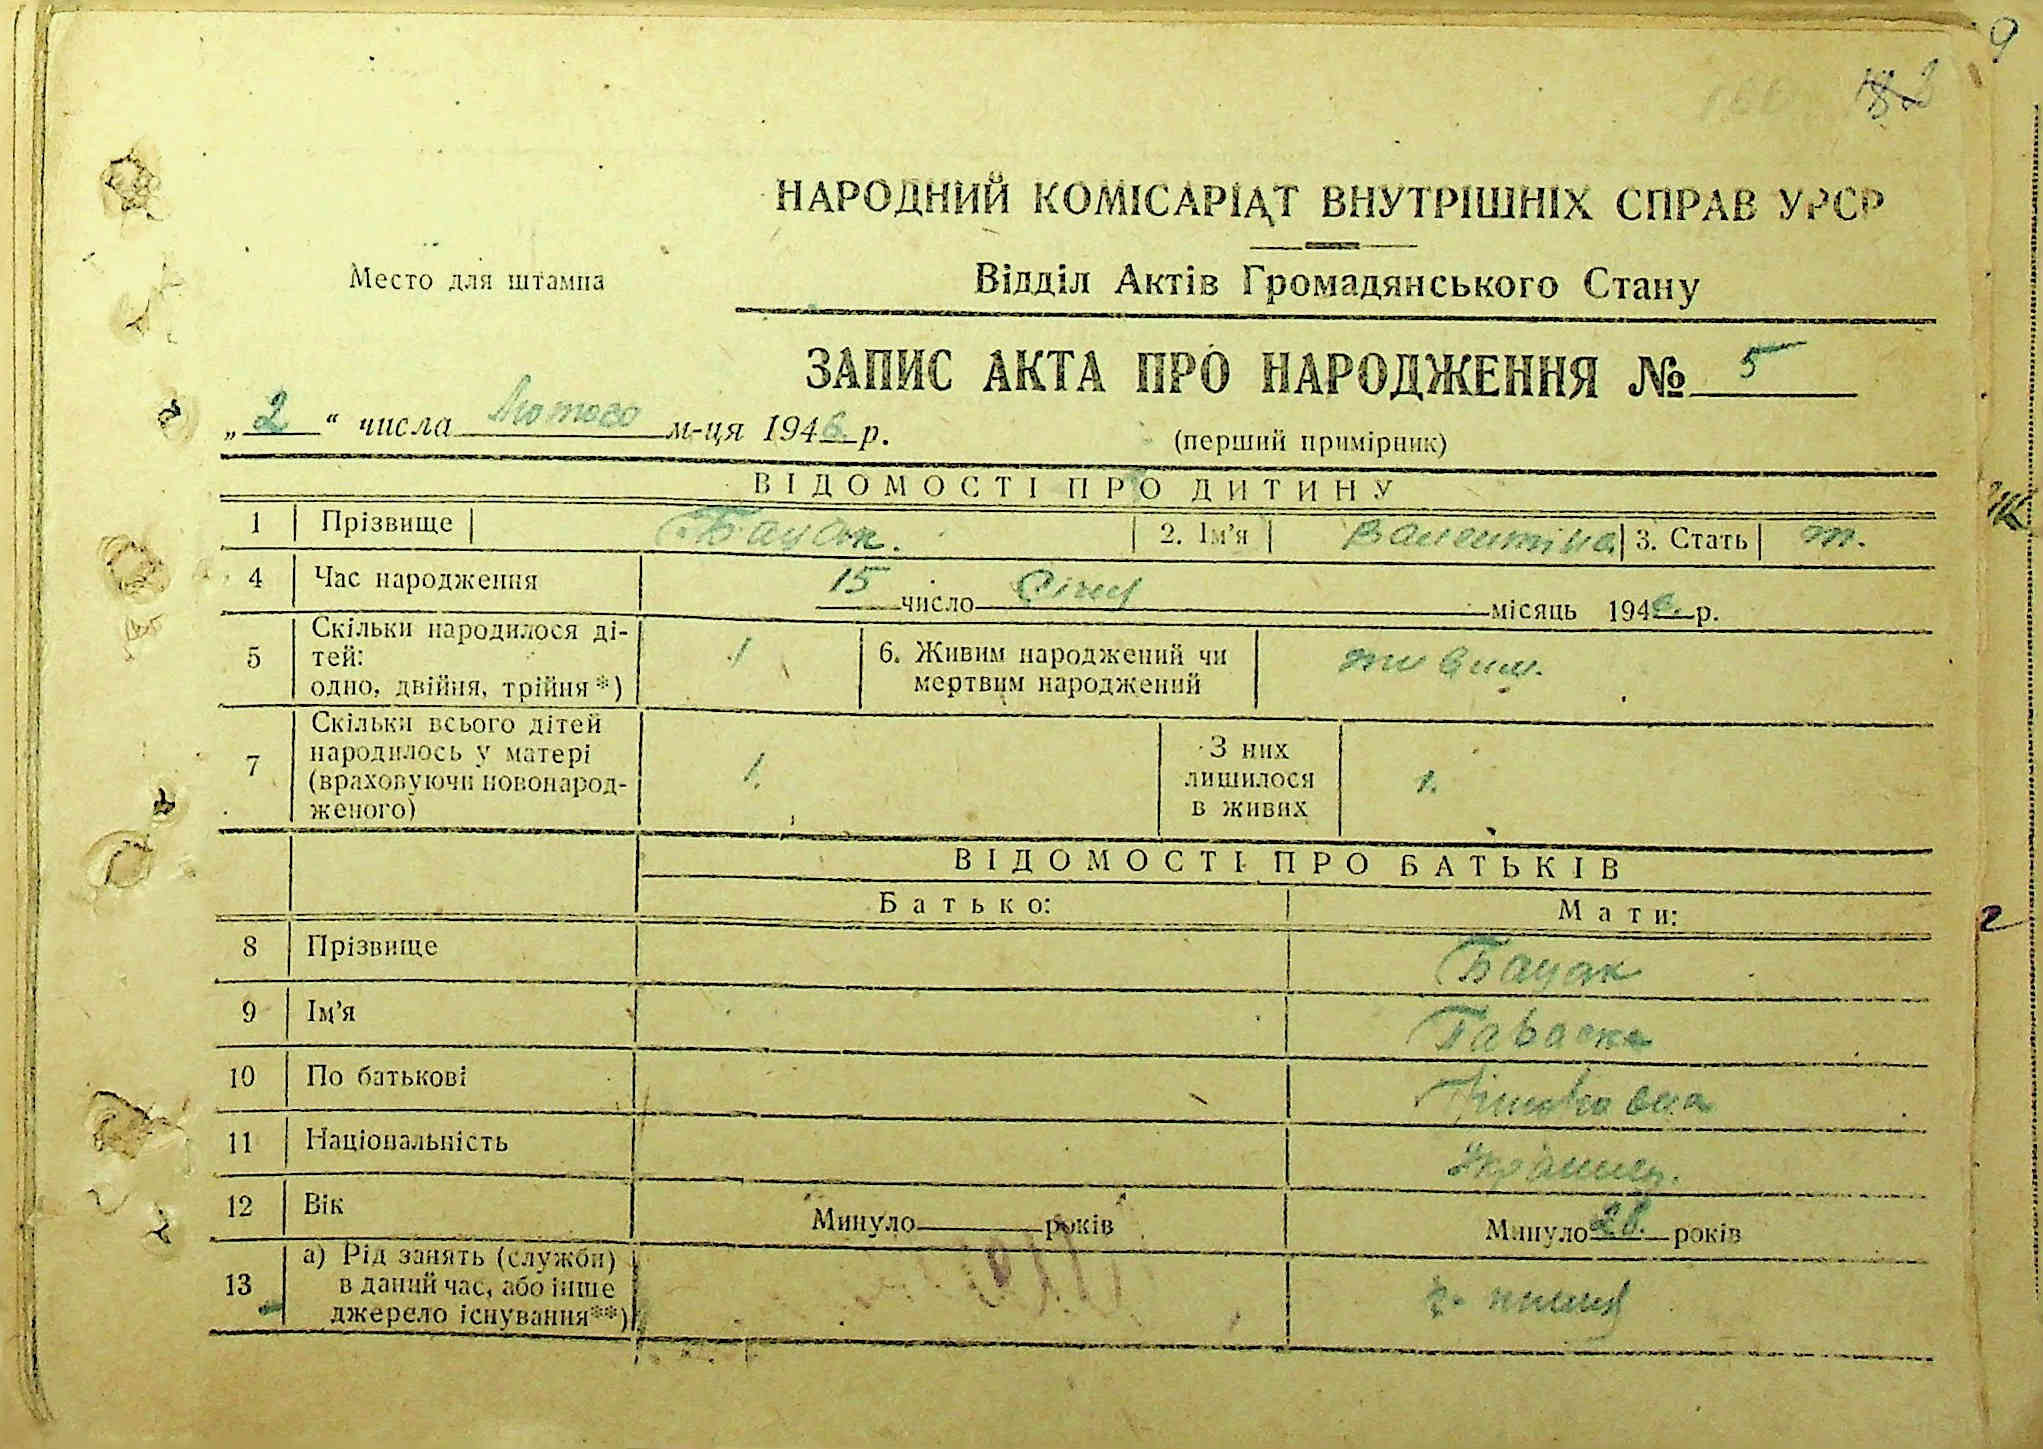 9
НАРОДНИЙ КОМІСАРІАТ ВНУТРІШНІХ СПРАВ УРСР
Место для штампа
Відділ Актів Громадянського Стану
ЗАПИС АКТА ПРО НАРОДЖЕННЯ № 5
„2“ числа Лютого м-ця 1946 р.
(перший примірник)
ВІДОМОСТІ ПРО ДИТИНУ
1 Прізвище Бацак. 2. Ім'я Валентина 3. Стать ж.
4 Час народження 15 число Січ місяць 1946. р.
5 Скільки народилося ді-
тей:
одно, двійня, трійня*) 1 6. Живим народжений чи
мертвим народжений живим.
7 Скільки всього дітей
народилось у матері
(враховуючи новонарод-
женого) 1. З них
лишилося
в живих 1.
ВІДОМОСТІ ПРО БАТЬКІВ
Батько: Мати:
8 Прізвище Бацак
9 Ім'я Параска
10 По батькові
11 Національність Украинец.
12 Вік Минуло років Минуло 28. років
13 а) Рід занять (служби)
в даний час, або інше
джерело існування**)
г